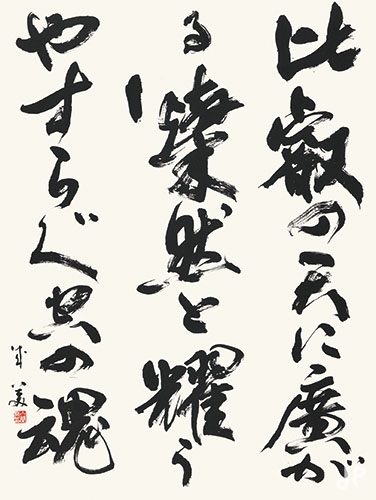 比叡の天に廣が
る燦然と耀う
やすらぐ其の魂